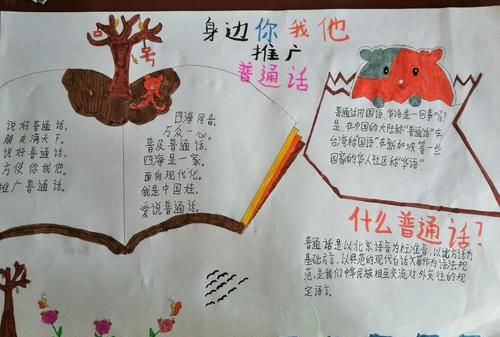 身边你我他
推广
普通话
号
说好普通话，
朋友满天下。
说好普通话，
方便你我他。
推广普通话。
四海同音，
万众一心。
普及普通话，
四海是一家。
面向现代化，
我是中国娃，
爱说普通话。
普通话同国语，华语是一回事吗？
是，在中国的大陆称“普通话”在
台湾称“国语”，在新加坡等一些
国家的华人社区称“华语”
什么普通话？
普通话是以北京语音为标准音，以北方话为
基础方言，以典范的现代白话文著作为语法规
范，是我们中华民族相互交流对外交往的规
定语言。